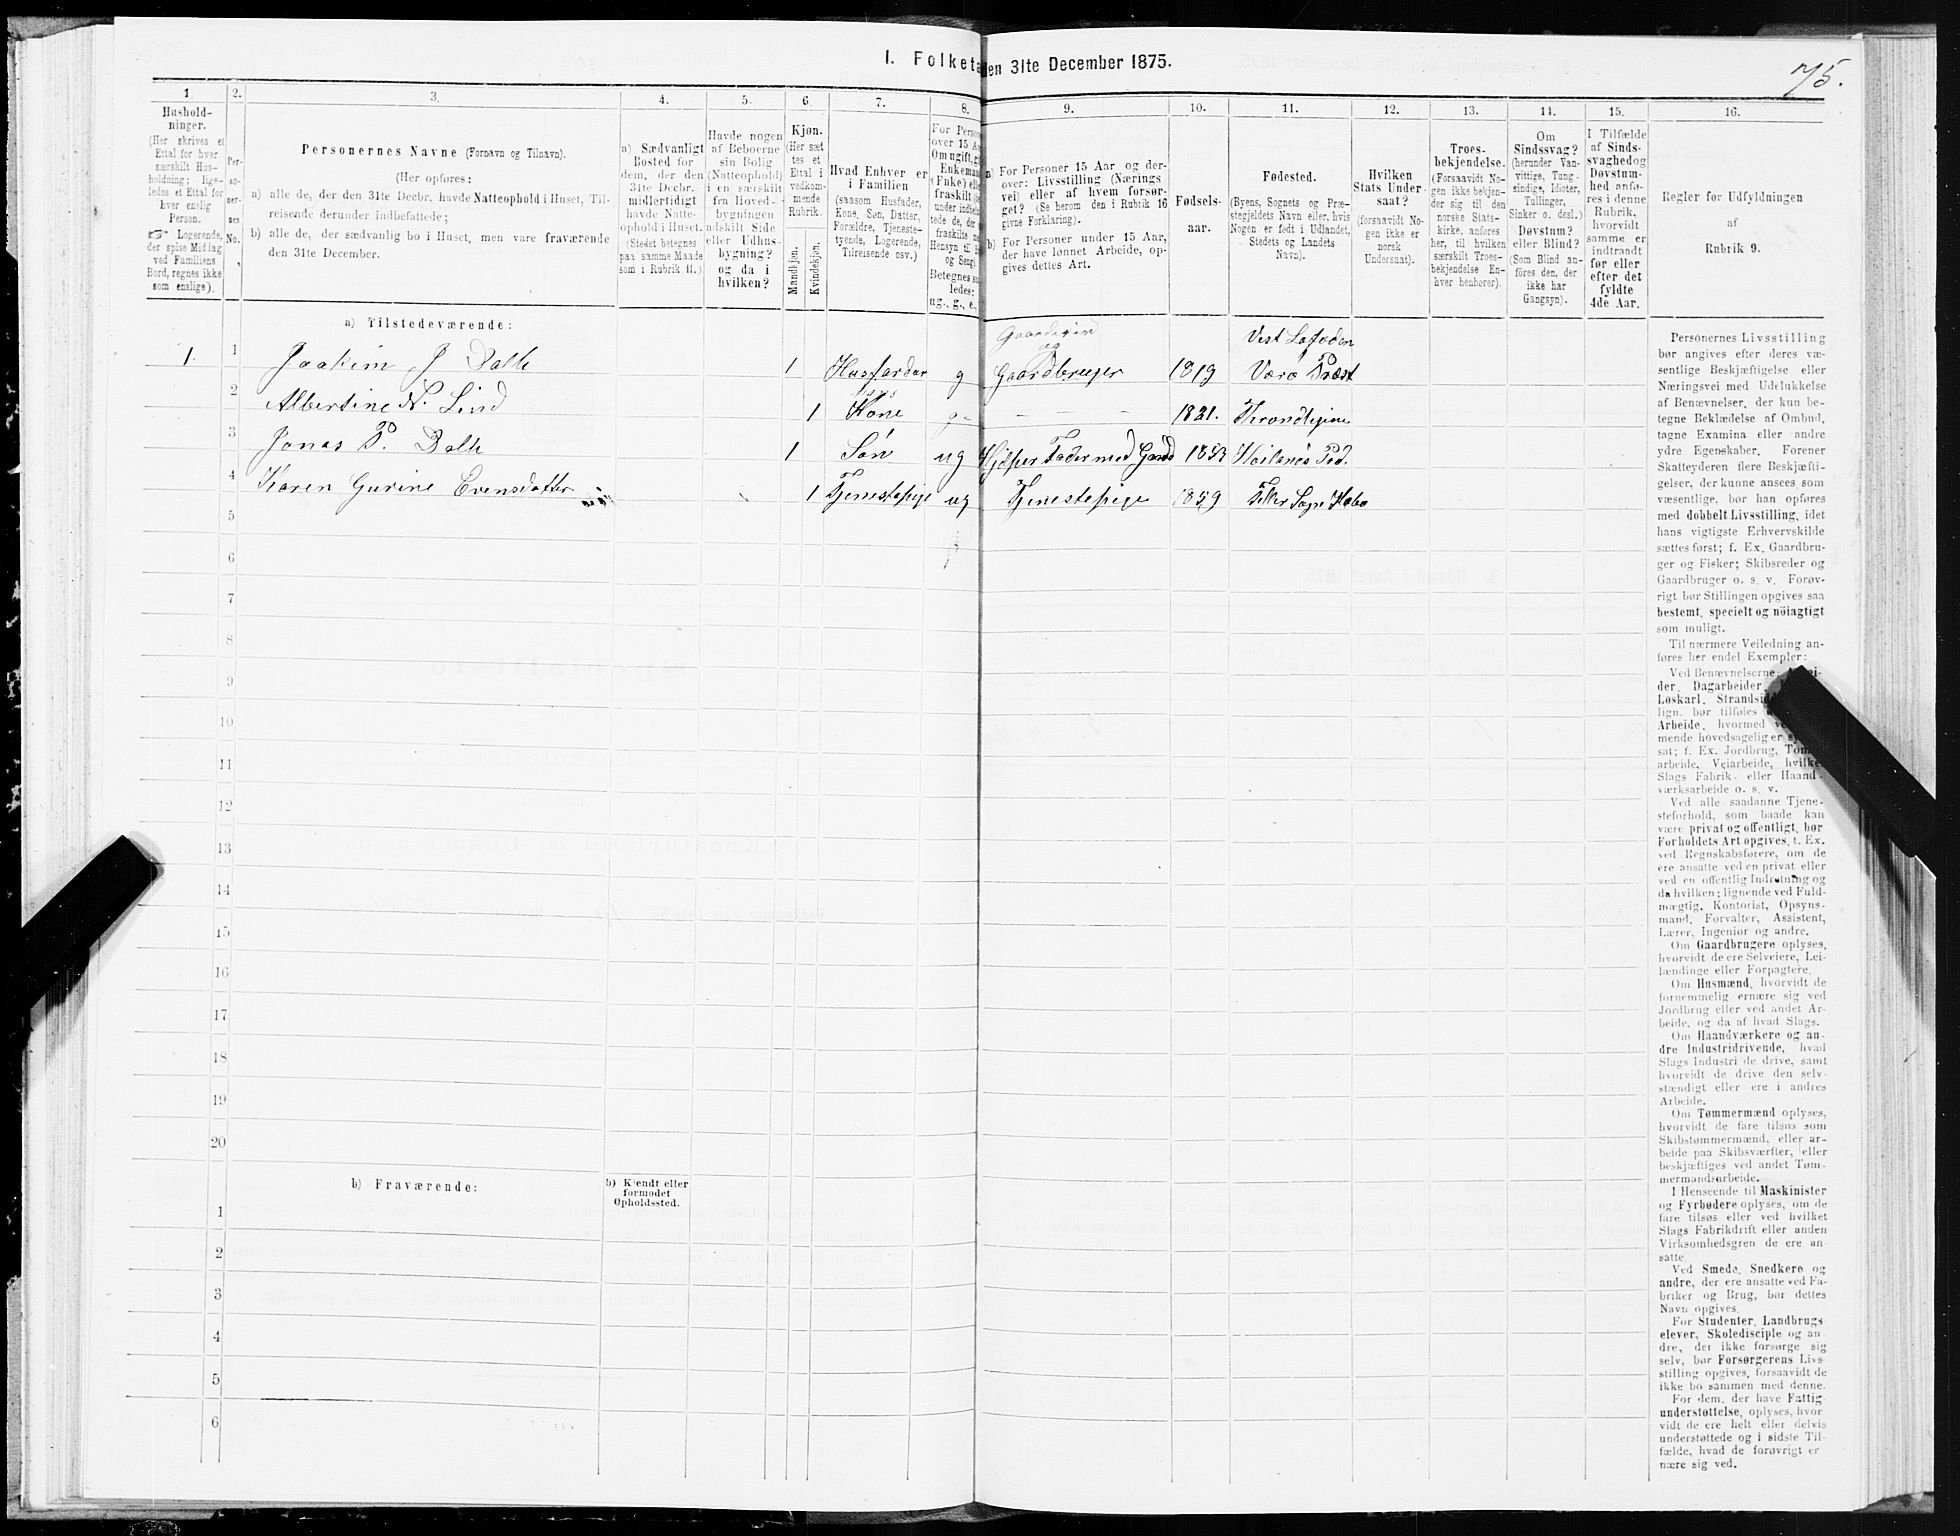 I. Folketa
en 31te December 1875.
75.
1.
2.
3.
4.
5.
6.
7.
8.
9.
10.
11.
12.
13.
14.
15.
16.
Hushold-
ninger.
(Her skrives et
Ettal for hver
særskilt Hus-
holdning; lige-
ledes et Ettal for
hver enslig
Person.
☞ Logerende,
der spise Midlag
ved Familiens
Bord, regnes ikke
som enslige).
Per-
so-
ner-
nes
No.
Personernes Navne (Fornavn og Tilnavn).
(Her opføres:
a) alle de, der den 31te Decbr. havde Natteophold i Huset, Til-
reisende derunder indbefattede;
b) alle de, der sædvanlig bo i Huset, men vare fraværende
den 31te December.
a) Sædvanligt
Bosted for
dem, der den
31te Decbr.
midlertidigt
havde Natte-
ophold i Huset.
(Stedet betegnes
paa samme Maade
som i Rubrik 11.)
Havde nogen
af Beboerne
sin Bolig
(Natteophold)
i en særskilt
fra Hoved-
bygningen
adskilt Side
eller Udhus-
bygning?
og da i
hvilken?
Kjøn.
(Her sæt
tes et
Ettal i
vedkom-
mende
Rubrik.
Mandkjøn.
Kvindekjøn.
Hvad Enhver er
i Familien
(saasom Husfader,
Kone, Søn, Datter,
Forældre, Tjeneste-
tyende, Logerende,
Tilreisende osv.)
For Person
over 15 Aa
Om ugift, gi
Enkemand
(Enke) elle
fraskilt (s
under indbe
tede de, der
fraskilte m
Hensyn til B
og Seng).
Betegnes sa
ledes:
ug., g., e.,
a) For Personer 15 Aar og der-
over: Livsstilling (Nærings
vei) eller af hvem forsør-
get? (Se herom den i Rubrik 16
givne Forklaring).
b) For Personer under 15 Aar,
der have lønnet Arbeide, op-
gives dettes Art.
Fødsels-
aar.
Fødested.
(Byens, Sognets og Præ-
stegjeldets Navn eller, hvis
Nogen er født i Udlandet,
Stedets og Landets
Navn).
Hvilken
Stats Under-
saat?
(forsaavidt No-
gen ikke er
norsk
Undersaat).
Troes-
bekjendelse.
(Forsaavidt No-
gen ikke bekjen-
der sig til den
norske Stats-
kirke, anføres
her, til hvilken
særskilt Troes-
bekjendelse En-
hver henhører).
Om
Sindssvag?
(herunder Van-
vittige, Tung-
sindige, Idioter,
Tullinger,
Sinker o. desl.)
Døvstum?
eller Blind?
(Som Blind an-
føres den, der
ikke har
Gangsyn).
I Tilfælde
af Sinds-
svaghed og
Døvstum-
hed anfø-
res i denne
Rubrik,
hvorvidt
samme er
indtraadt
før eller
efter det
fyldte
4de Aar.
Regler for Udfyldningen
af
Rubrik 9.
a) Tilstedeværende:
Gaardeier
og
Vest Lofoden
1. 1 Joakim J Dalh 1 Husfarder g Gaardbruger 1819 Værø Præst
2 Albertine N. Lind 1 Kone g — — — 1821. Trondhjem
3 Jonas P. Dalh 1 Søn ug Hjelper Fader med Gaard 1853
4 Karen Gurine Evensdatter 1 Tjenestepige ug Tjenestepige 1859
5
6
7
8
9
10
11
12
13
14
15
16
17
18
19
20
b) Fraværende:
b) Kjendt eller
formodet
Opholdssted.
1
2
3
4
5
6
Personernes Livsstilling
bør angives efter deres væ-
sentlige Beskjæftigelse eller
Næringsvei med Udelukkelse
af Benævnelser, der kun be-
tegne Beklædelse af Ombud,
tagne Examina eller andre
ydre Egenskaber. Forener
Skatteyderen flere Beskjæfti-
gelser, der kunne ansees som
væsentlige, bør han opføres
med dobbelt Livsstilling, idet
hans vigtigste Erhvervskilde
sættes først; f. Ex. Gaardbru-
ger og Fisker; Skibsreder og
Gaardbruger o. s. v. Forøv-
rigt bør Stillingen opgives saa
bestemt, specielt og nöiagtigt
som muligt.
Til nærmere Veiledning an-
føres her endel Exempler:
Ved Benævnelserne:
der, Dagarbeider,
Løskarl, Strandsid
lign. bør tilføies
Arbeide, hvormed
mende hovedsagelig er
sat; f. Ex. Jordbrug,
arbeide, Veiarbeide, hvilke
Slags Fabrik- eller Haand-
værksarbeide o. s. v.
Ved alle saadanne Tjene-
steforhold, som baade kan
være privat og offentligt, bør
Forholdets Art opgives, t. Ex.
ved Regnskabsførere, om de
ere ansatte ved en privat eller
ved en offentlig Indretning og
da hvilken; lignende ved Fuld-
mægtig, Kontorist, Opsyns-
mand, Forvalter, Assistent,
Lærer, Ingeniør og andre.
Om Gaardbrugere oplyses,
hvorvidt de ere Selveiere, Lei-
lændinge eller Forpagtere.
Om Husmænd, hvorvidt de
fornemmelig ernære sig ved
Jordbrug eller ved andet Ar-
beide, og da af hvad Slags.
Om Haandværkere og an-
dre Industridrivende, hvad
Slags Industri de drive, samt
hvorvidt de drive den selv-
stændigt eller ere i andres
Arbeide.
Om Tømmermænd oplyses,
hvorvidt de fare tilsøs som
Skibstømmermænd, eller ar-
beide paa Skibsværfter, eller
beskjæftiges ved andet Tøm-
mermandsarbeide.
I Henseende til Maskinister
og Fyrbødere oplyses, om de
fare tilsøs eller ved hvilket
Slags Fabrikdrift eller anden
Virksomhedsgren de ere an-
satte.
Ved Smede, Snedkere og
andre, der ere ansatte ved Fa-
briker og Brug, bør dettes
Navn opgives.
For Studenter, Landbrugs-
elever, Skoledisciple og an-
dre, der ikke forsørge sig
selv, bør Forsørgerens Livs-
stilling opgives, forsaavidt de
ikke bo sammen med denne.
For dem, der have Fattig-
understøttelse, oplyses, hvor-
vidt de ere helt eller delvis
understøttede og i sidste Til-
fælde, hvad de forøvrigt er
nære sig ved.